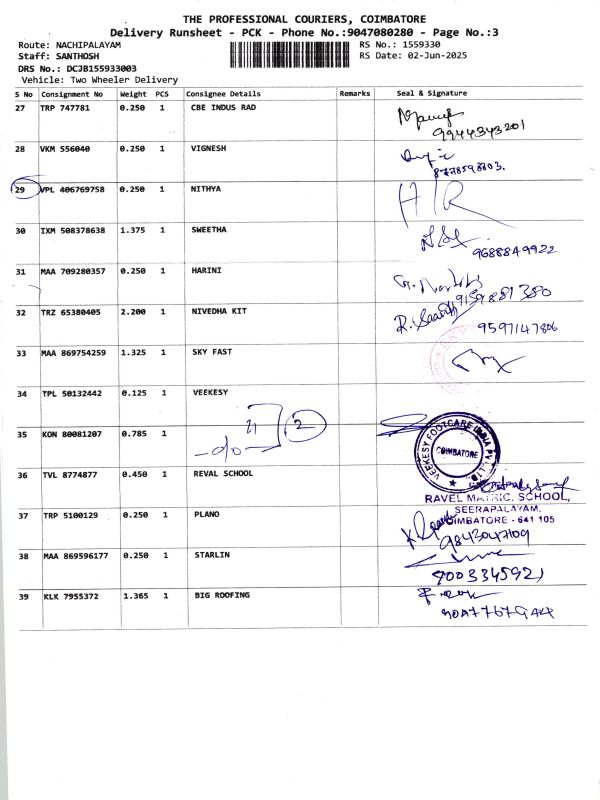 THE PROFESSIONAL COURIERS, COIMBATORE
Delivery Runsheet - PCK - Phone No.:9047080280 - Page No.:3
Route: NACHIPALAYAM
RS No.: 1559330
Staff: SANTHOSH
RS Date: 02-Jun-2025
DRS No.: DCJB155933003
Vehicle: Two Wheeler Delivery
S No Consignment No Weight PCS Consignee Details Remarks Seal & Signature
27 TRP 747781 0.250 1 CBE INDUS RAD
9944343201
28 VKM 556040 0.250 1 VIGNESH
29 VPL 406769758 0.250 1 NITHYA
30 IXM 508378638 1.375 1 SWEETHA
9688849922
31 MAA 709280357 0.250 1 HARINI
9159881380
32 TRZ 65380405 2.200 1 NIVEDHA KIT
9597147806
33 MAA 869754259 1.325 1 SKY FAST
34 TPL 50132442 0.125 1 VEEKESY
2
35 KON 80081207 0.785 1
VEEKESY FOOTCARE INDIA PVT. LTD.
COIMBATORE
36 TVL 8774877 0.450 1 REVAL SCHOOL
RAVEL MATRIC. SCHOOL,
SEERAPALAYAM,
COIMBATORE - 641 105
37 TRP 5100129 0.250 1 PLANO
9843047109
38 MAA 869596177 0.250 1 STARLIN
9003345921
39 KLK 7955372 1.365 1 BIG ROOFING